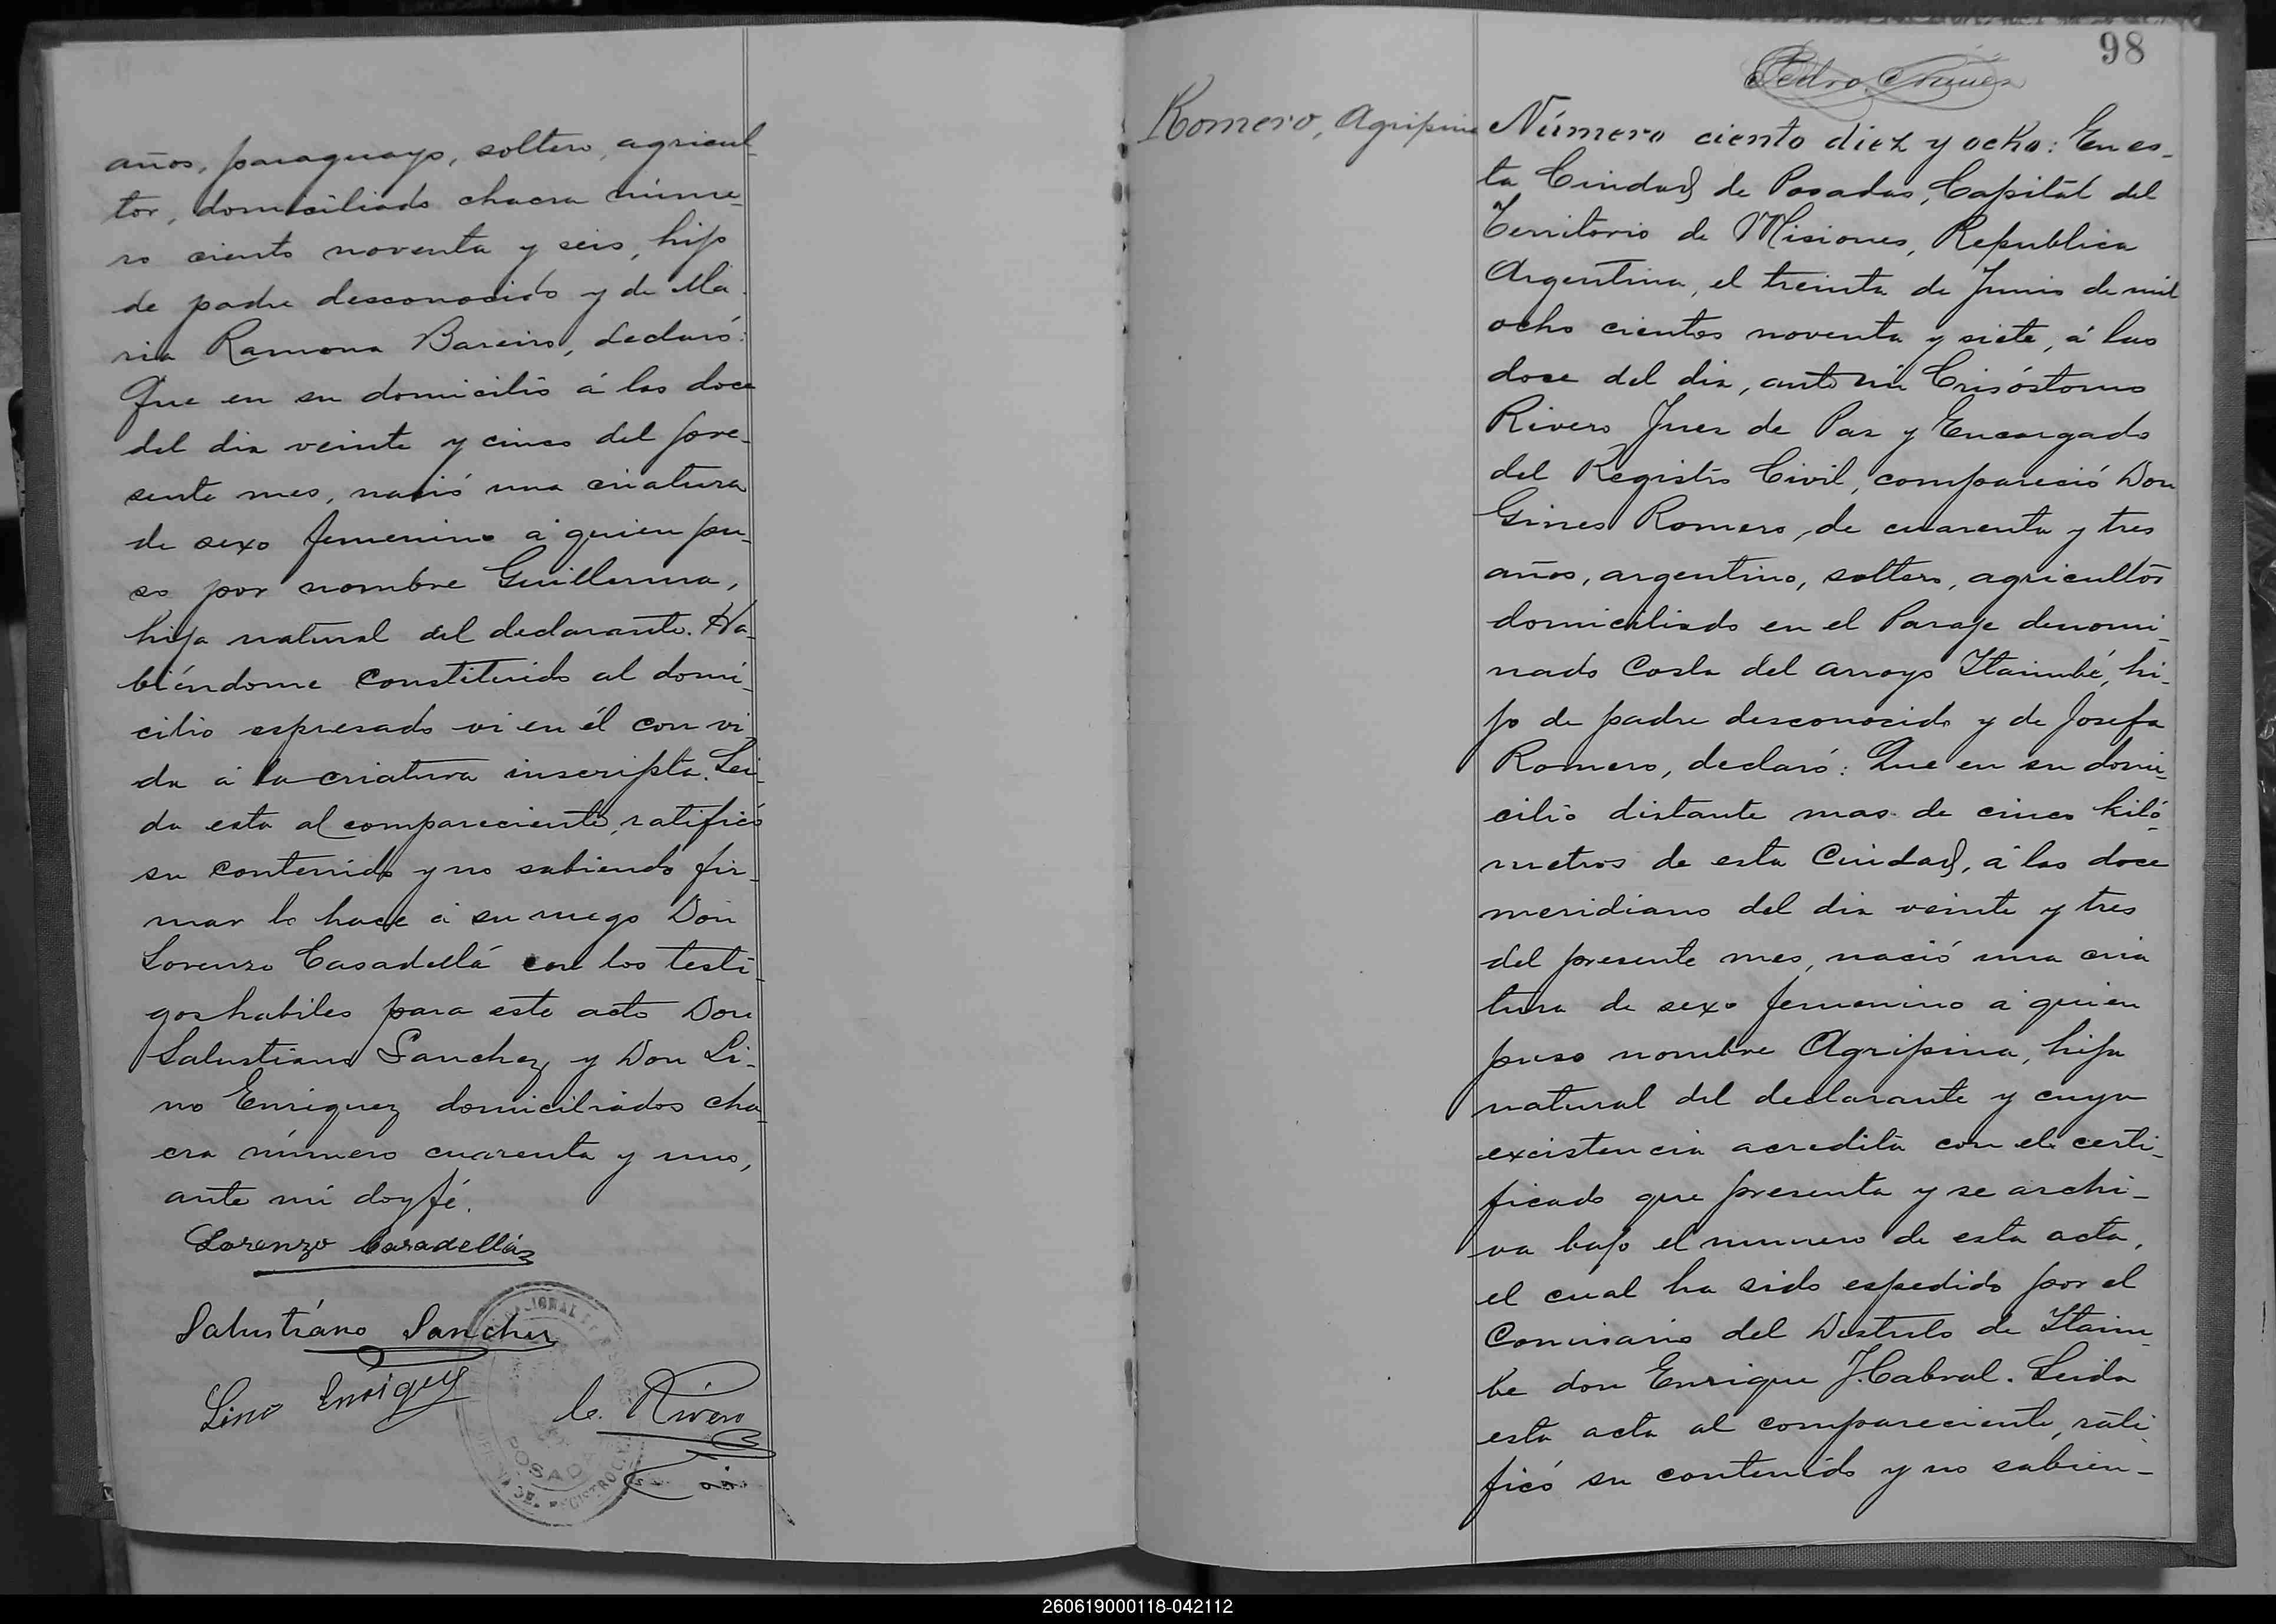 años, paraguayo, soltero, agricul-
tor, domiciliado chacra núme-
ro ciento noventa y seis, hijo
de padre desconocido y de Ma-
ria Ramona Bareiro, declaró:
Que en su domicilio á las doce
del dia veinte y cinco del pre-
sente mes, nació una criatura
de sexo femenino á quien pu-
so por nombre Guillerma,
hija natural del declarante. Ha-
biéndome constituido al domi-
cilio espresado vi en él con vi-
da á la criatura inscripta. Lei-
da esta al compareciente, ratificó
su contenido y no sabiendo fir-
mar lo hace á su ruego Don
Lorenzo Casadellá con los testi-
gos habiles para este acto Don
Salustiano Sanchez y Don Li-
no Enriquez domiciliados cha-
cra número cuarenta y uno,
ante mi doy fé.
Lorenzo Casadellá
Salustiano Sanchez
Lino Enriquez
C. Rivero
POSADAS
REGISTRO
98
Pedro
Romero, Agripina
Número ciento diez y ocho: En es-
ta Ciudad de Posadas, Capital del
Territorio de Misiones, Republica
Argentina, el treinta de Junio de mil
ocho cientos noventa y siete, á las
doce del dia, ante mi Crisóstomo
Rivero Juez de Paz y Encargado
del Registro Civil, compareció Don
Gines Romero, de cuarenta y tres
años, argentino, soltero, agricultor
domiciliado en el Paraje denomi-
nado Costa del arroyo Itaimbé, hi-
jo de padre desconocido y de Josefa
Romero, declaró: Que en su domi-
cilio distante mas de cinco kiló-
metros de esta Ciudad, á las doce
meridiano del dia veinte y tres
del presente mes, nació una cria
tura de sexo femenino á quien
puso nombre Agripina, hija
natural del declarante y cuya
excistencia acredita con el certi-
ficado que presenta y se archi-
va bajo el numero de esta acta,
el cual ha sido espedido por el
Comisario del Distrito de Itaim-
be don Enrique J. Cabral. Leida
esta acta al compareciente, rati-
ficó su contenido y no sabien-
260619000118-042112